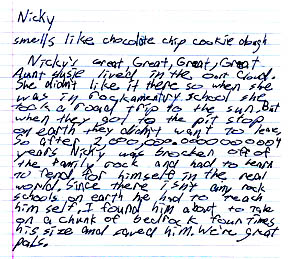 Nicky
smells like chocolate chip cookie dough
Nicky's great, Great, Great, Great
Aunt Susie lived in the oort cloud.
She didn't like it there so when she
was in rockamentury school she
took a road trip to the sun. But
when they got to the pit stop
on earth they didn't want to leave,
so after 2,000,000.0000000009
years Nicky was brocken off of
the family rock and had to learn
to fend for himself in the real
world. Since there isn't any rock
schools on earth he had to teach
him self. I found him about to take
on a chunk of bedrock four times
his size and saved him. We're great
pals.